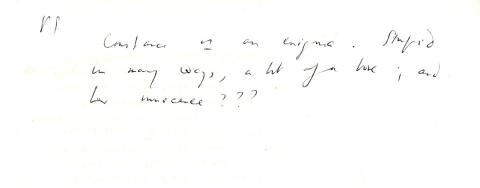 PS
Constance is an enigma. Stupid
in many ways, a bit of a bore; and
her innocence???